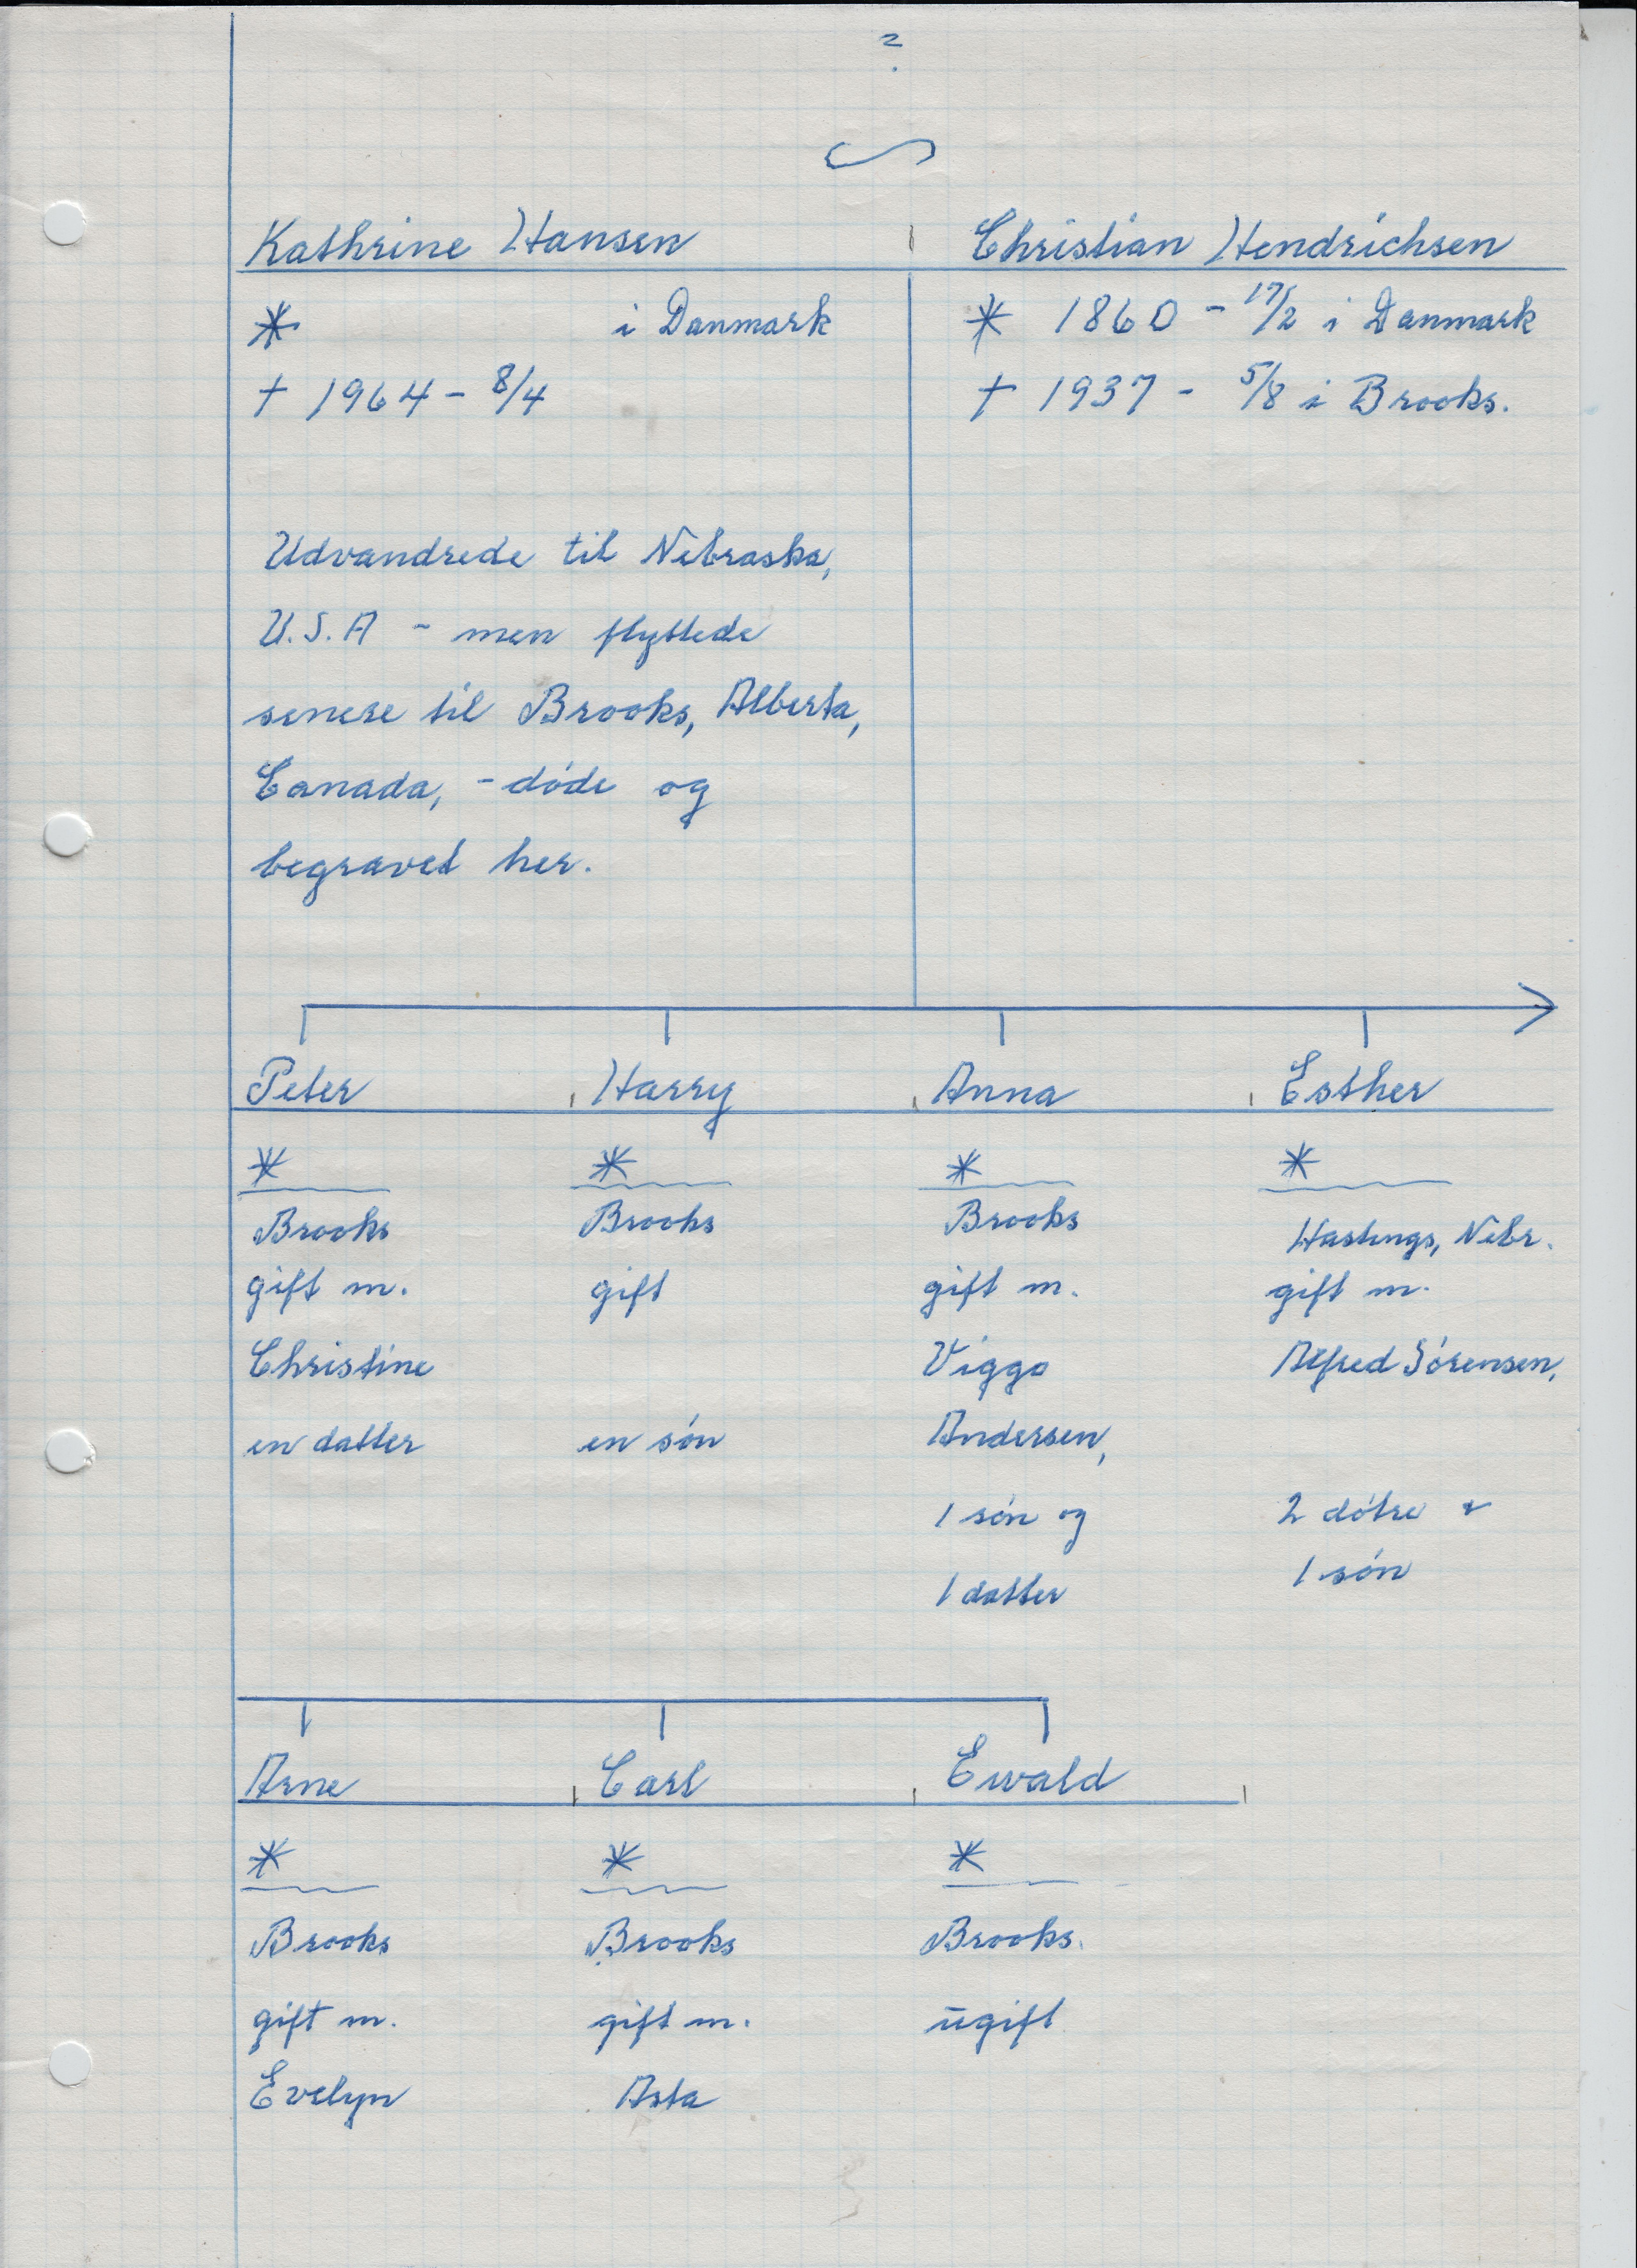 2.
Kathrine Hansen Christian Hendrichsen
* i Danmark * 1860 - 17/2 i Danmark
† 1964 - 8/4 † 1937 - 5/8 i Brooks.
Udvandrede til Nebraska,
U.S.A - men flyttede
senere til Brooks, Alberta,
Canada, - döde og
begravet her.
Peter Harry Anna Esther
* * * *
Brooks Brooks Brooks Hastings, Nebr.
gift m. gift gift m. gift m.
Christine Viggo Alfred Sörensen,
en datter en sön Andersen,
1 sön og 2 dötre &
1 datter 1 sön
Arne Carl Ewald
* * *
Brooks Brooks Brooks.
gift m. gift m. ugift
Evelyn Asta